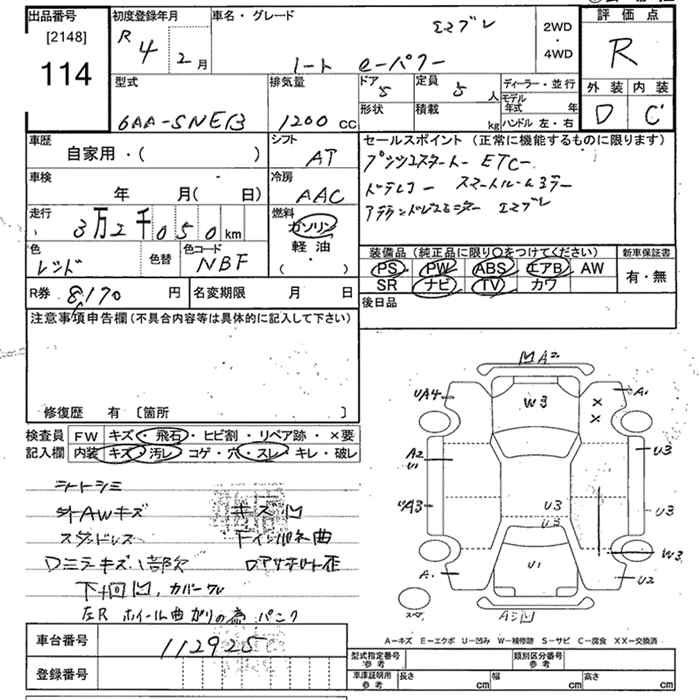 出品番号
[2148]
114
初度登録年月
R 4 2月
車名・グレード
エマブレ
ノート e-パワー
2WD
・
4WD
評価点
R
外装 内装
D C
型式
6AA-SNE13
排気量
1200 cc
ドア 5
定員 5人
形状
積載 kg
ディーラー・並行
モデル年式 年
ハンドル 左・右
車歴
自家用・( )
シフト
AT
車検
年 月( 日)
冷房
AAC
走行
3万2千050km
燃料
ガソリン
軽油
( ・ )
色
レッド
色替
色コード
NBF
セールスポイント (正常に機能するものに限ります)
プッシュスタート ETC
ドラレコ スマートルームミラー
アラウンドビューモニター エマブレ
装備品 (純正品に限り○をつけてください)
PS PW ABS エアB AW
SR ナビ TV カワ
新車保証書
有・無
R券 8,170 円
名変期限 月 日
後日品
注意事項申告欄(不具合内容等は具体的に記入して下さい)
修復歴 有 〔箇所 〕
検査員記入欄
FW キズ・飛石・ヒビ割・リペア跡・×要
内装 キズ・汚レ・コゲ・穴・スレ・キレ・破レ
シートシミ
外AWキズ キズ凹
スタッドレス
下回凹、カバーワレ
左R ホイール曲がりの為 パンク
車台番号
112925
登録番号
凹A2
UA4
W3
A1
×
×
A2
U1
U3
UA3
U3
U3
U3
W3
A1
U1
U2
スペア
A3凹
A=キズ E=エクボ U=凹み W=補修跡 S=サビ C=腐食 XX=交換済
型式指定番号 参考
類別区分番号 参考
車庫証明用 参考
長さ cm
幅 cm
高さ cm